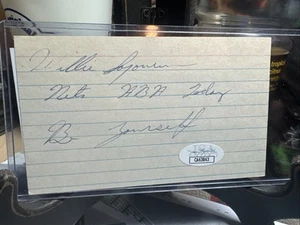 Willie Sojourner
Nets ABA Today
Be Yourself
JSA